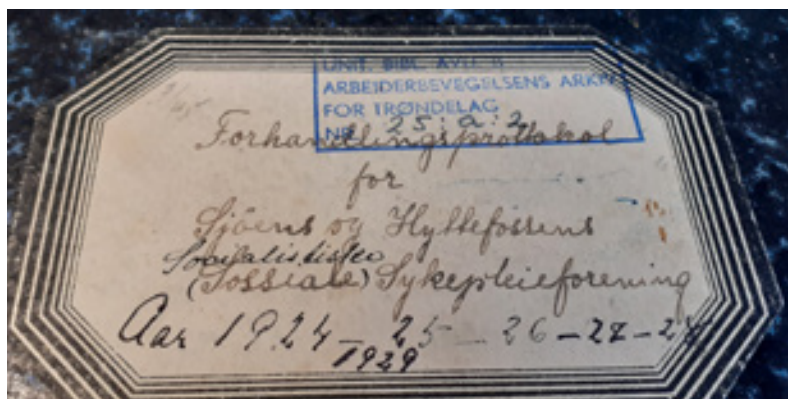 UNIT. BIBL. AVD. B
ARBEIDERBEVEGELSENS ARKIV
FOR TRØNDELAG
NR. 25:a:2
Forhandlingsprottokol
for
Sjöens og Hyttefossens
Sosialistiske
(Sossiale) Sykepleieforening
Aar 1924 – 25 – 26 – 27 – 28
1929